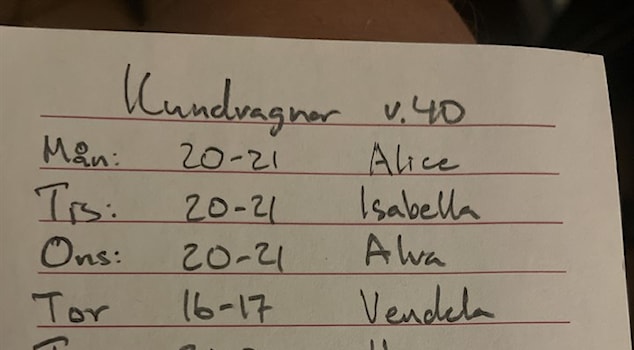 Kundvagnar v.40
Mån: 20-21 Alice
Tis: 20-21 Isabella
Ons: 20-21 Alva
Tor 16-17 Vendela